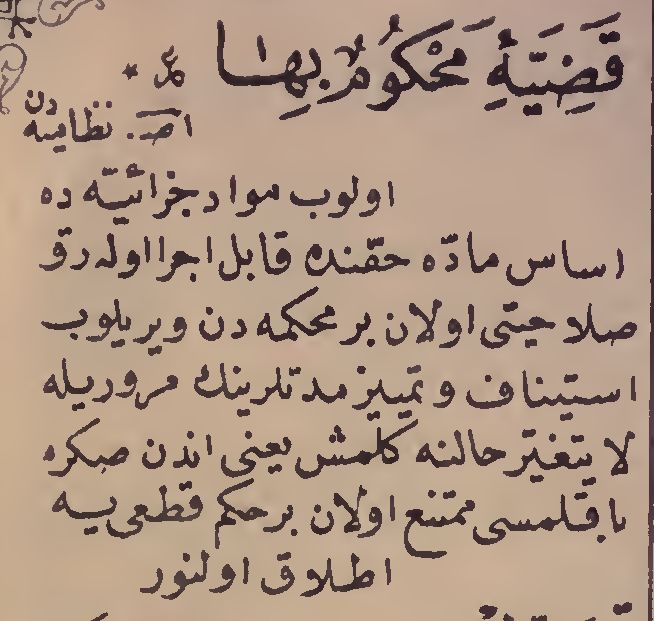 قَضِيَّهٔ مَحْكُومٌ بِهَا
اصـ. نظاميه دن
اولوب مواد جزائيّه ده
اساس مادّه حقنده قابل اجرا اوله رق
صلاحيتى اولان بر محكمه دن ويريلوب
استيناف و تمييز مدتلرينك مروريله
لا يتغيّر حالنه كلمش يعنى اندن صكره
باقلمسى ممتنع اولان بر حكم قطعى يه
اطلاق اولنور